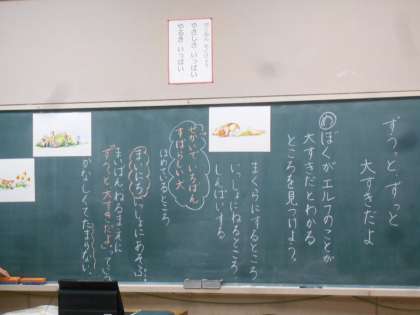 やさしさ いっぱい
やるき いっぱい
ずうっと、ずっと
大すきだよ
め ぼくが エルフのことが
大すきだとわかる
ところを見つけよう。
まくらにするところ
いっしょにねるところ
しんぱいする
せかいでいちばん
すばらしい犬
ほめているところ
まいにちいっしょにあそぶ。
まいばんねるまえに
「ずうっと、大すきだよ」っている
かなしくてたまらない